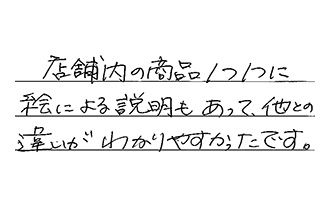 店舗内の商品1つ1つに
絵による説明もあって、他との
違いがわかりやすかったです。